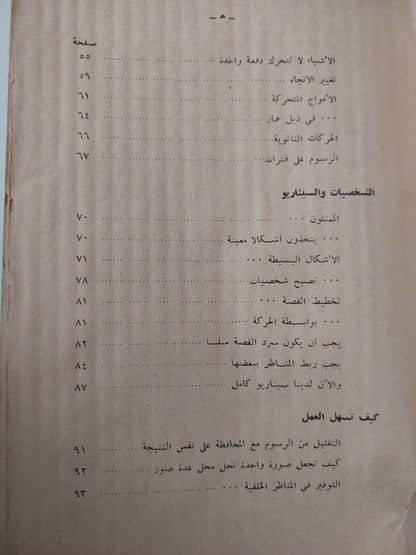 - ه -
صفحة
الأشياء لا تتحرك دفعة واحدة ... ... ... ... ... ٥٥
تغيير الاتجاه ... ... ... ... ... ٥٩
الأمواج المتحركة ... ... ... ... ... ٦١
... في ذيل حمار ... ... ... ... ... ٦٤
الحركات الثانوية ... ... ... ... ... ٦٦
الرسوم على فترات ... ... ... ... ... ٦٧
الشخصيات والسيناريو
الممثلون ... ... ... ... ... ٧٠
... يتخذون أشكالا معينة ... ... ... ... ٧٠
الأشكال البسيطة ... ... ... ... ... ٧١
... تصبح شخصيات ... ... ... ... ٧٨
تخطيط القصة ... ... ... ... ... ٨١
... بواسطة الحركة ... ... ... ... ٨١
يجب أن يكون سرد القصة سلسا ... ... ... ٨٢
يجب ربط المناظر ببعضها ... ... ... ... ٨٤
والآن لدينا سيناريو كامل ... ... ... ... ٨٧
كيف تسهل العمل
التقليل من الرسوم مع المحافظة على نفس النتيجة ... ... ٩١
كيف تجعل صورة واحدة تحل محل عدة صور ... ... ٩٢
التوفير في المناظر الخلفية ... ... ... ... ٩٣